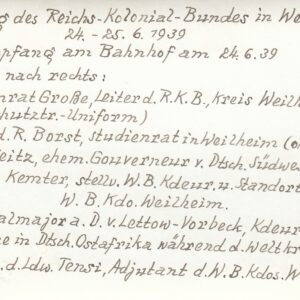 g des Reichs-Kolonial-Bundes in We
24.-25.6.1939
pfang am Bahnhof am 24.6.39
nach rechts:
nrat Große, Leiter d. R.K.B., Kreis Weilh
chutztr.-Uniform)
d. R. Borst, Studienrat in Weilheim (o
eitz, ehem. Gouverneur v. Dtsch. Südwes
Kemter, stellv. W.B. Kdeur. u. Standort
W.B. Kdo. Weilheim.
almajor a. D. v. Lettow-Vorbeck, Kdeur
e in Dtsch. Ostafrika während d. Weltkr
. d. Ldw. Tensi, Adjutant d. W.B. Kdos. W